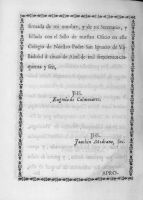 firmada de mi nombre, y de mi Secretario, y
sellada con el Sello de nuestro Oficio en este
Colegio de Nuestro Padre San Ignacio de Va-
lladolid à cinco de Abril de mil setecientos cin-
quenta y seis,
JHS.
Eugenio de Colmenares.
JHS.
Joachin Medrano, Sec.
APRO-